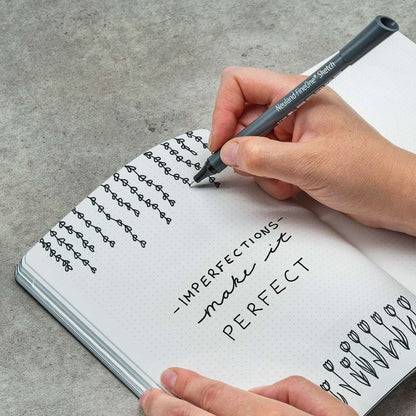 Neuland FineOne® Sketch
- IMPERFECTIONS -
make it
PERFECT